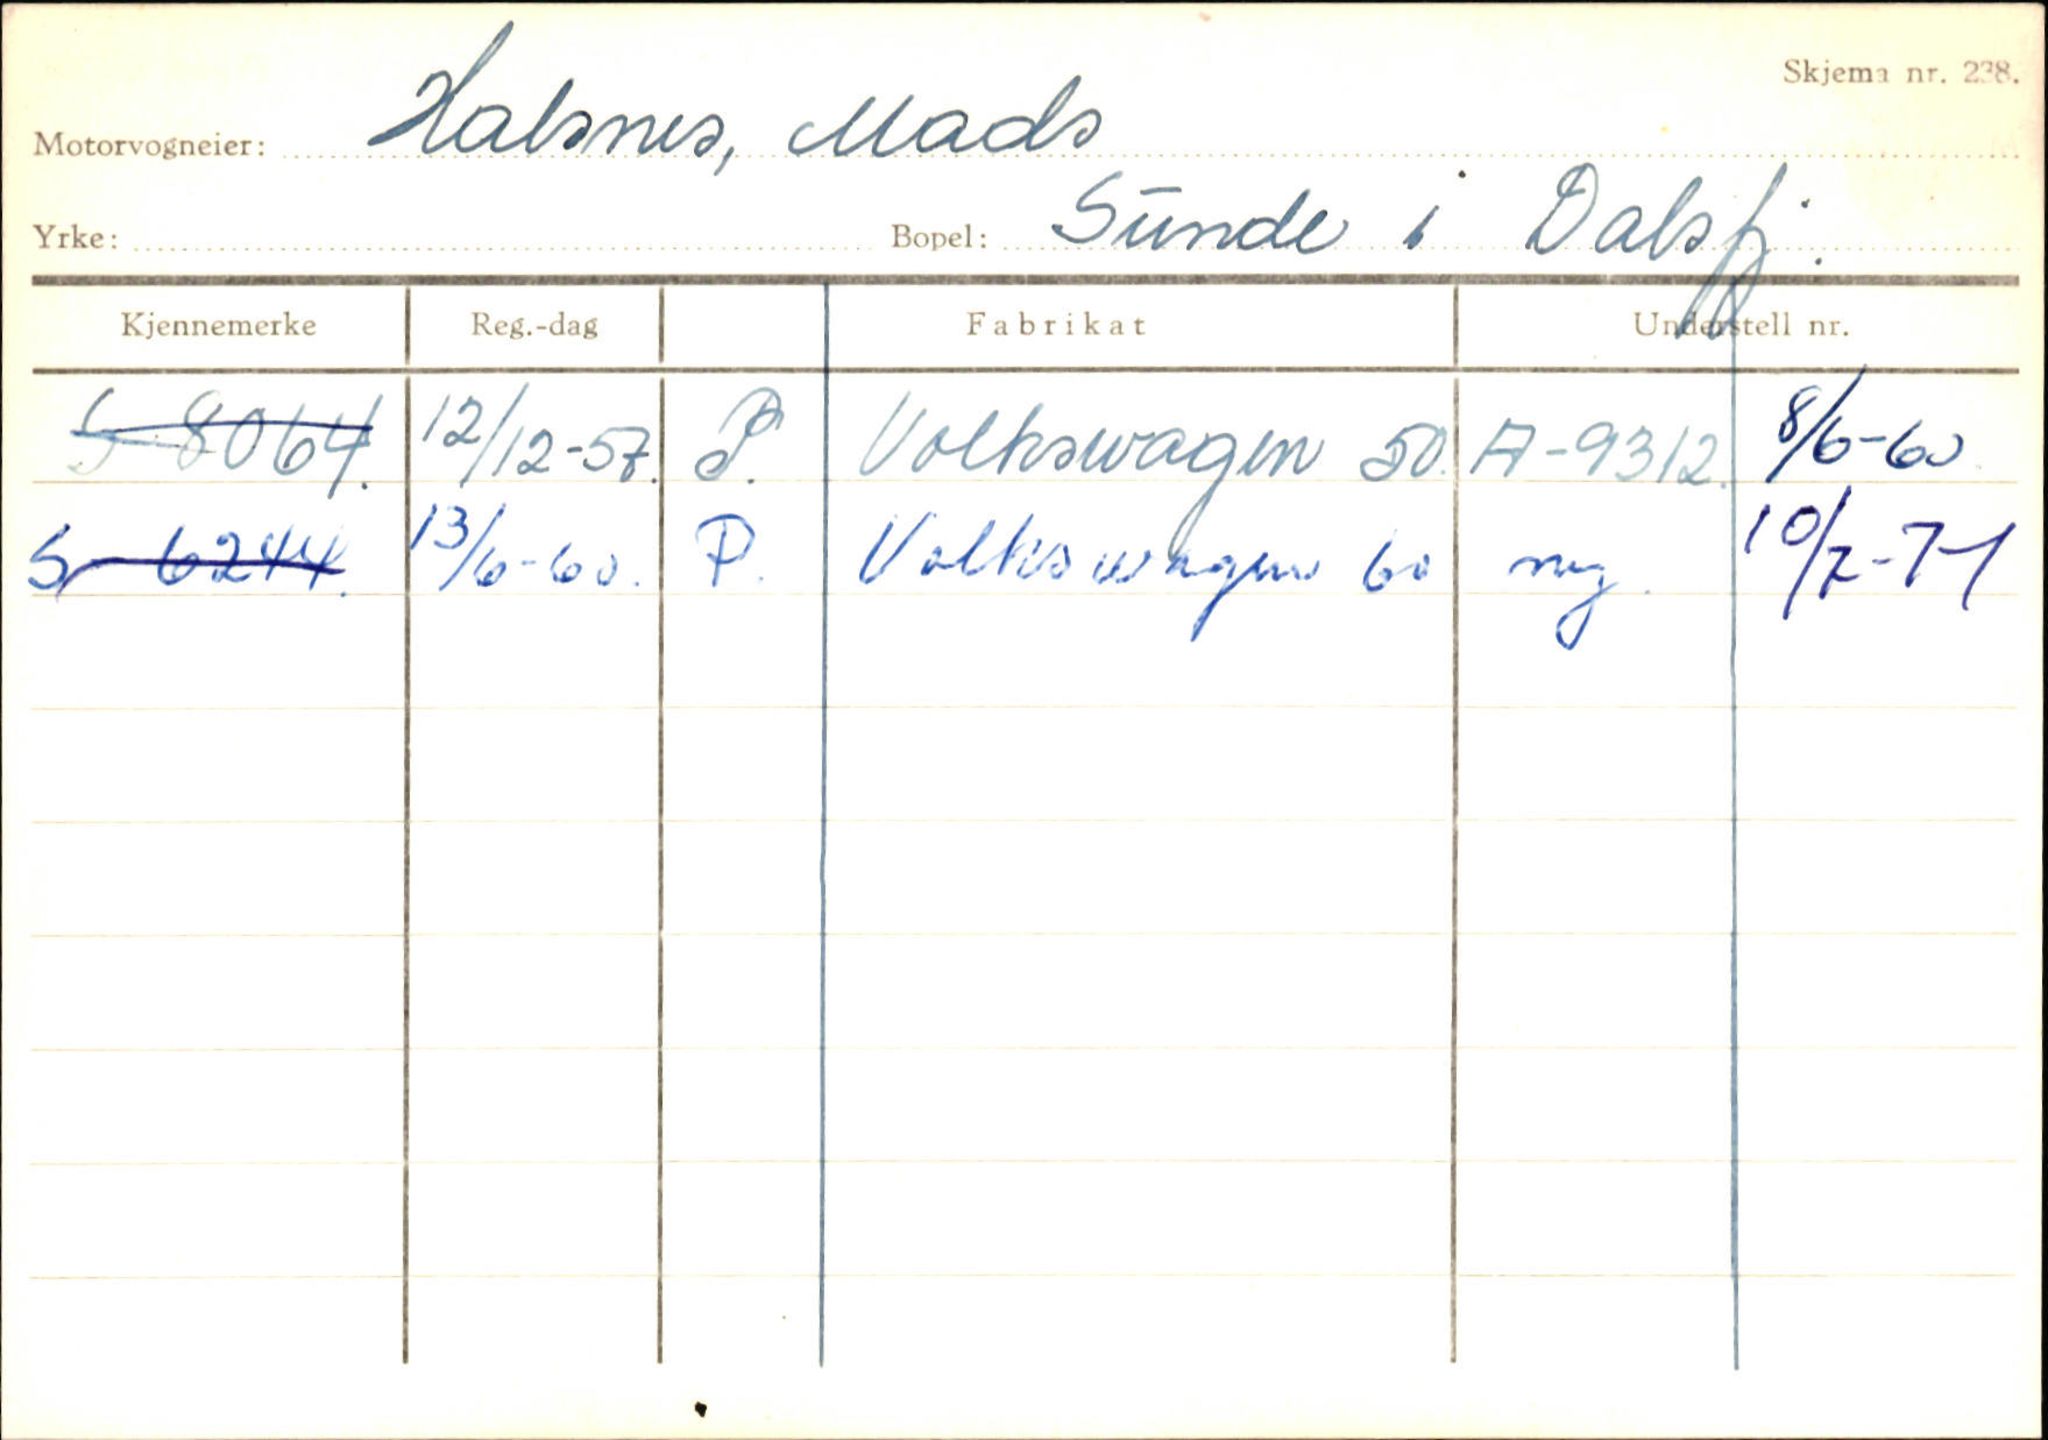 Skjema nr. 238.
Motorvogneier: Halsnes, Mads
Yrke: Bopel: Sunde i Dalsfj.
Kjennemerke Reg.-dag Fabrikat Understell nr.
S 8064. 12/12-57. P. Volkswagen 50. A-9312. 8/6-60
S 6244. 13/6-60. P. Volkswagen 60 ny. 10/7-71